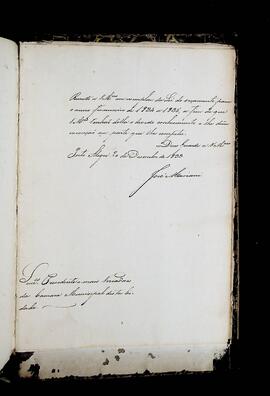 Remetto a V.Mces um exemplar da Lei do orçamento para
o anno financeiro de 1834 a 1835, a fim de que
V.Mces tenhão della o devido conhecimento e lhe dêm
execução na parte que lhes compete.
Deos Guarde a V.Mces
Porto Alegre 20 de Dezembro de 1833
José Mariani
Snres Presidente e mais Vereadores
da Camara Municipal desta Ci-
dade